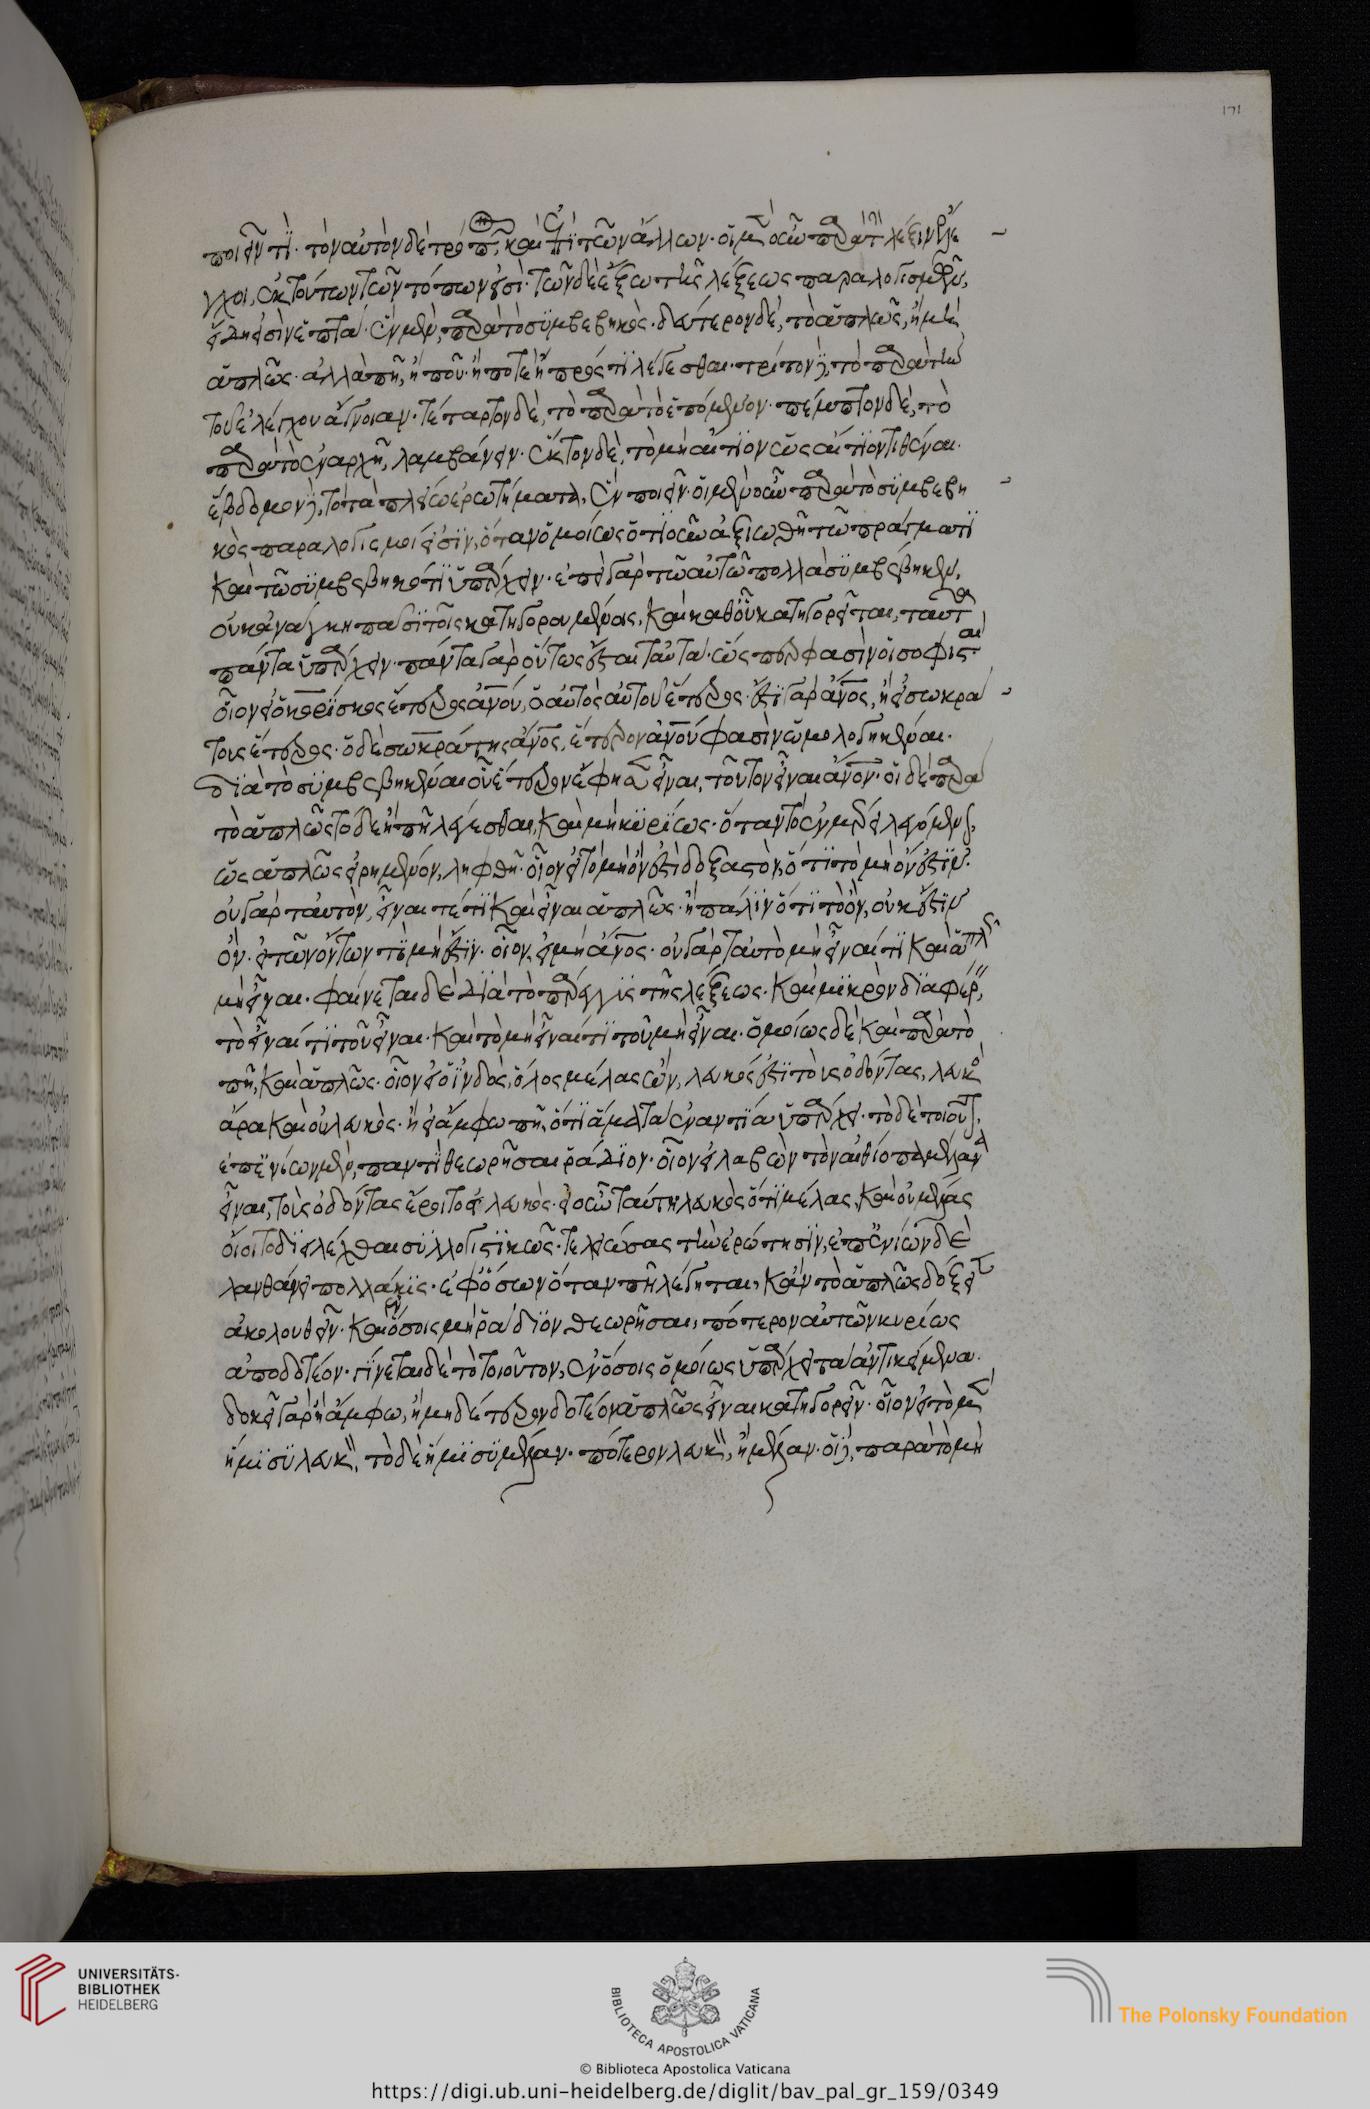 171
ποιεῖν τι· τὸν αὐτὸν δὲ τρόπον καὶ ἐπὶ τῶν ἄλλων· οἱ μὲν οὖν παρὰ τὴν λέξιν ἔλε
γχοι, ἐκ τούτων τῶν τόπων εἰσί· τῶν δὲ ἔξω τῆς λέξεως παραλογισμῶν,
εἴδη εἰσὶν ἑπτά· ἓν μὲν, παρὰ τὸ συμβεβηκός· δεύτερον δὲ, τὸ ἁπλῶς, ἢ μὴ
ἁπλῶς· ἀλλὰ πῆ, ἢ ποῦ· ἢ ποτὲ ἢ πρός τι λέγεσθαι· τρίτον δὲ, τὸ παρὰ τὴν
τοῦ ἐλέγχου ἄγνοιαν· τέταρτον δὲ, τὸ παρὰ τὸ ἑπόμενον· πέμπτον δὲ, τὸ
παρὰ τὸ ἐν ἀρχῇ λαμβάνειν· ἕκτον δὲ, τὸ μὴ αἴτιον ὡς αἴτιον τιθέναι·
ἕβδομον δὲ, τὸ τὰ πλείω ἐρωτήματα, ἓν ποιεῖν· οἱ μὲν οὖν παρὰ τὸ συμβεβη
κὸς παραλογισμοί εἰσιν, ὅταν ὁμοίως ὁτιοῦν ἀξιωθῇ τῷ πράγματι
καὶ τῷ συμβεβηκότι ὑπάρχειν· ἐπεὶ γὰρ τῷ αὐτῷ πολλὰ συμβέβηκεν,
οὐκ ἀνάγκη πᾶσι τοῖς κατηγορουμένοις, καὶ καθ' οὗ κατηγορεῖται, ταῦτα
πάντα ὑπάρχειν· πάντα γὰρ οὕτως ἔσται ταὐτά· ὥς πέρ φασιν οἱ σοφισταί
οἷον εἰ ὁ κορίσκος ἕτερος ἀνου, ὁ αὐτὸς αὑτοῦ ἕτερος· ἔστι γὰρ ἄνος, ἢ εἰ σωκρά
τους ἕτερος· ὁ δὲ σωκράτης ἄνος, ἕτερον ἀνου φασὶν ὡμολογηκέναι·
διὰ τὸ συμβεβηκέναι οὗ ἕτερον ἔφησεν εἶναι, τοῦτον εἶναι ἄνον· οἱ δὲ παρὰ
τὸ ἁπλῶς τόδε ἢ πῆ λέγεσθαι, καὶ μὴ κυρίως· ὅταν τὸ ἐν μέρει λεγόμενον,
ὡς ἁπλῶς εἰρημένον, ληφθῇ· οἷον εἰ τὸ μὴ ὄν ἐστι δοξαστὸν, ὅτι τὸ μὴ ὄν ἐστιν·
οὐ γὰρ ταυτὸν, εἶναι τέ τι καὶ εἶναι ἁπλῶς· ἢ πάλιν ὅτι τὸ ὂν, οὐκ ἔστιν
ὄν· εἰ τῶν ὄντων τι μή ἐστιν· οἷον, εἰ μὴ ἄνος· οὐ γὰρ ταὐτὸ μὴ εἶναί τι καὶ ἁπλῶς
μὴ εἶναι· φαίνεται δὲ διὰ τὸ πάρεγγυς τῆς λέξεως· καὶ μικρὸν διαφέρειν
τὸ εἶναί τι τοῦ εἶναι· καὶ τὸ μὴ εἶναί τι τοῦ μὴ εἶναι· ὁμοίως δὲ καὶ παρὰ τὸ
πῆ, καὶ ἁπλῶς· οἷον εἰ ὁ ἰνδὸς, ὅλος μέλας ὢν, λευκός ἐστι τοὺς ὀδόντας, λευκὸς
ἄρα καὶ οὐ λευκὸς· ἢ εἰ ἄμφω πῆ, ὅτι ἅμα τὰ ἐναντία ὑπάρχει· τὸ δὲ τοιοῦτον,
ἐπ' ἐνίων μὲν, παντὶ θεωρῆσαι ῥάδιον· οἷον εἰ λαβὼν τὸν αἰθίοπα μέλανα
εἶναι, τοὺς ὀδόντας ἔροιτο εἰ λευκὸς· εἰ οὖν ταύτῃ λευκὸς ὅτι μέλας, καὶ οὐ μέλας
οἴοιτο διειλέχθαι συλλογιστικῶς· τελειώσας τὴν ἐρώτησιν, ἐπ' ἐνίων δὲ
λανθάνει πολλάκις· ἐφ' ὅσων ὅταν πῆ λέγηται, κἂν τὸ ἁπλῶς δόξειεν
ἀκολουθεῖν· καὶ ἐν ὅσοις μὴ ῥάδιον θεωρῆσαι, πότερον αὐτῶν κυρίως
ἀποδοτέον· γίνεται δὲ τὸ τοιοῦτον, ἐν ὅσοις ὁμοίως ὑπάρχει τὰ ἀντικείμενα·
δοκεῖ γὰρ ἢ ἄμφω, ἢ μηδέτερον δοτέον ἁπλῶς εἶναι κατηγορεῖν· οἷον εἰ τὸ μὲν
ἥμισυ λευκὸν, τὸ δὲ ἥμισυ μέλαν· πότερον λευκὸν, ἢ μέλαν· οἱ δὲ, παρὰ τὸ μὴ
UNIVERSITÄTS-
BIBLIOTHEK
HEIDELBERG
BIBLIOTECA APOSTOLICA VATICANA
© Biblioteca Apostolica Vaticana
The Polonsky Foundation
https://digi.ub.uni-heidelberg.de/diglit/bav_pal_gr_159/0349